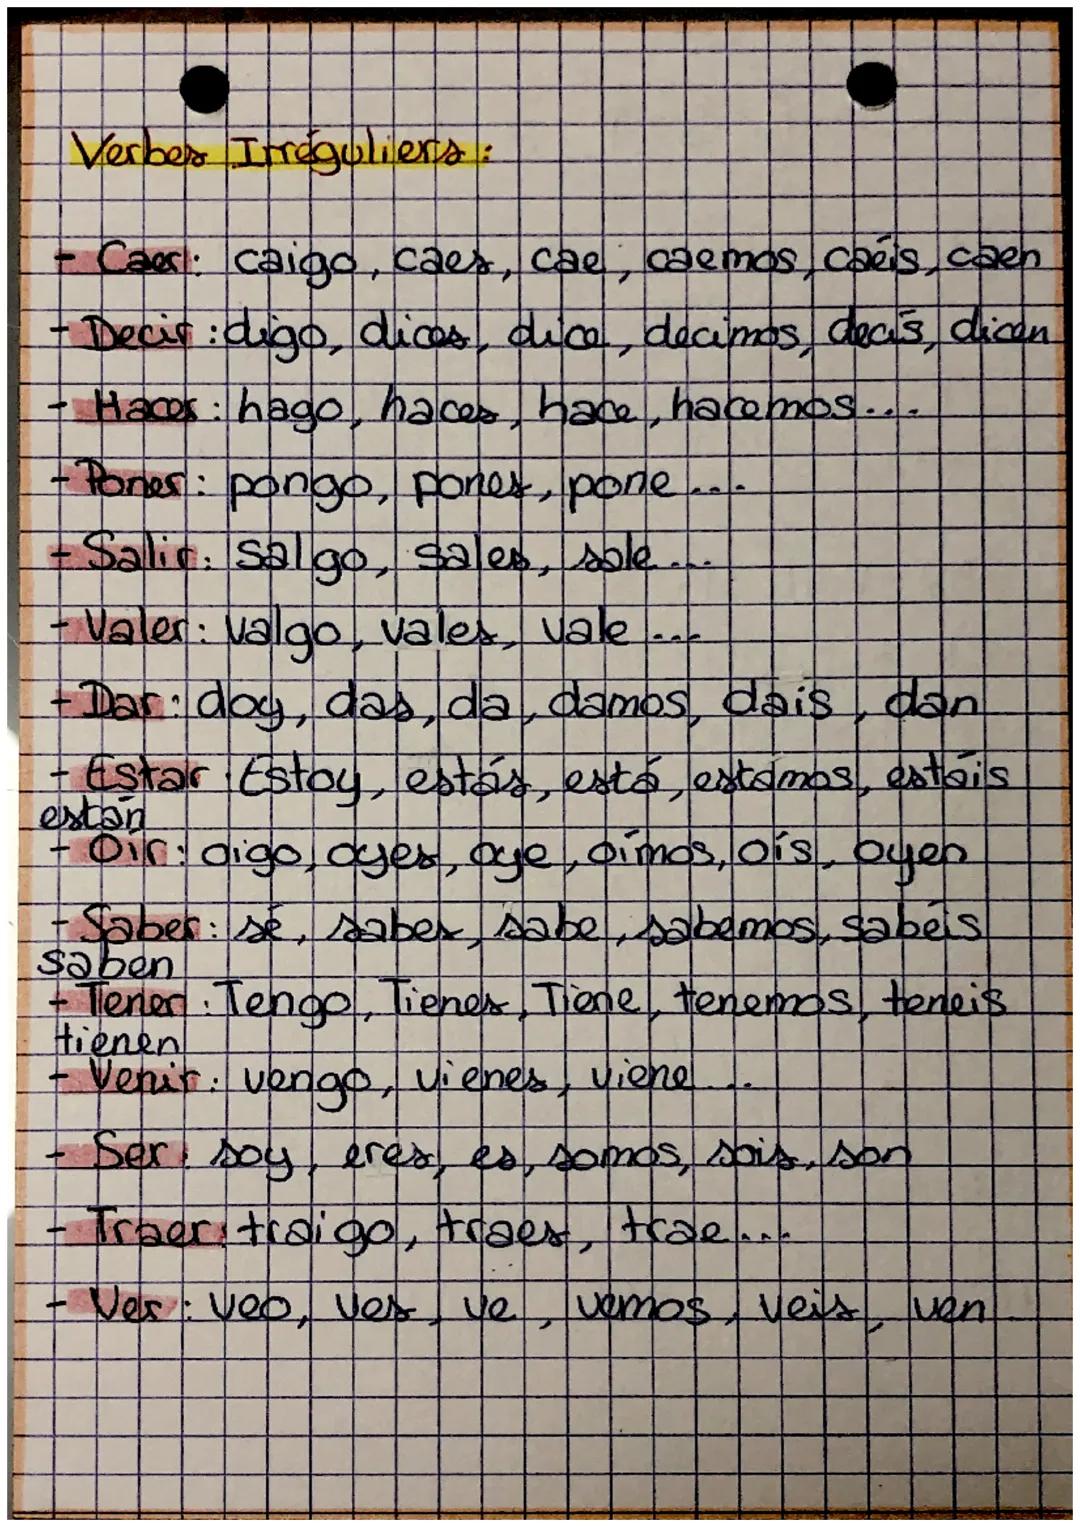 Verbes Irréguliers :
- Caer : caigo, caes, cae, caemos, caéis, caen
- Decir : digo, dices, dice, decimos, decís, dicen
- Hacer : hago, haces, hace, hacemos...
- Poner : pongo, pones, pone ...
- Salir : salgo, sales, sale ...
- Valer : valgo, vales, vale ...
- Dar : doy, das, da, damos, dais, dan
- Estar : Estoy, estás, está, estámos, estáis
están
- Oir : oigo, oyes, oye, oímos, oís, oyen
- Saber : sé, sabes, sabe, sabemos, sabéis
saben
- Tener : Tengo, Tienes, Tiene, tenemos, teneis
tienen
- Venir : vengo, vienes, viene ...
- Ser : soy, eres, es, somos, sois, son
- Traer : traigo, traes, trae...
- Ver : veo, ves, ve, vemos, veis, ven